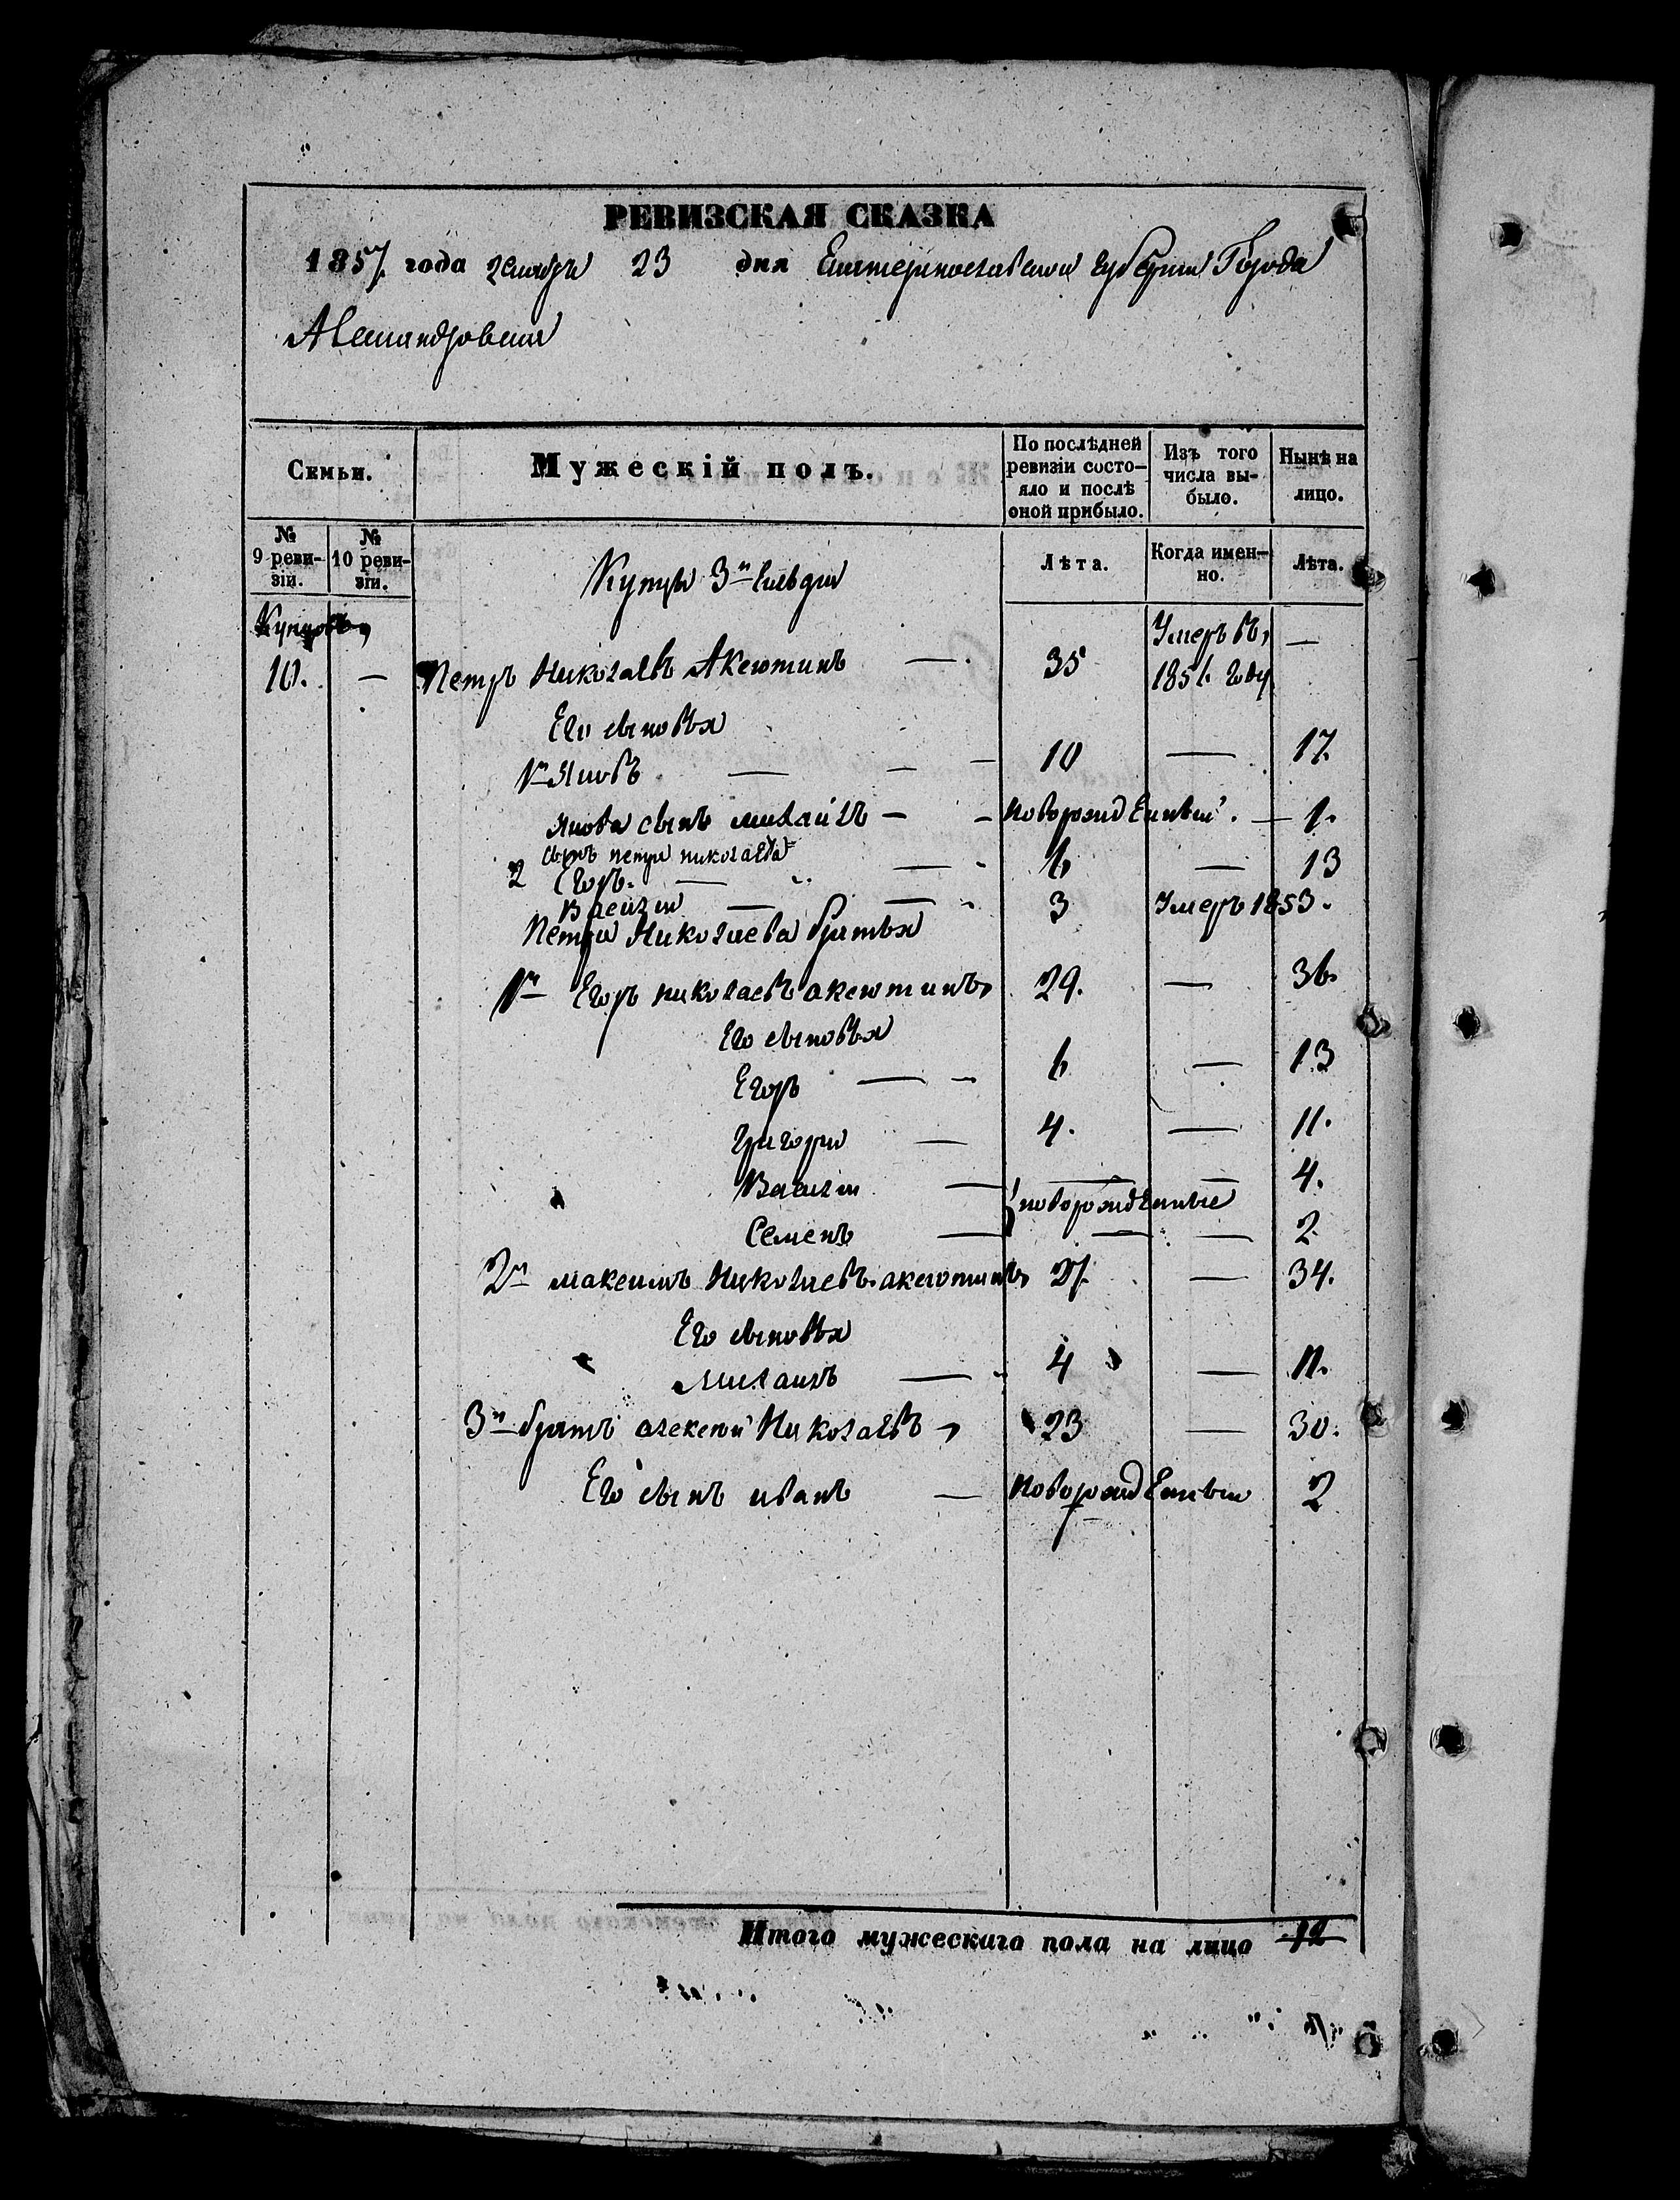 РЕВИЗСКАЯ СКАЗКА
1857 года декабря 23 дня Екатеринославской губернии Города
Александровска
Семьи.
Мужескій полъ.
По послѣдней ревизіи состо-
яло и послѣ оной прибыло.
Изъ того числа вы-
было.
Нынѣ на лицо.
№ 9 реви-
зіи.
№ 10 реви-
зіи.
Купцы 3й гильдіи
Лѣта.
Когда имен-
но.
Лѣта.
10. — Петръ Николаевъ Аксютинъ — 35 Умеръ въ 1856 году —
Его сыновья
1й Яковъ — — — 10 — 17
Якова сынъ михаилъ — — новорожденный. — 1.
сынъ петра николаева
2 Егоръ. — — 6 — 13
Василій — — 3 Умеръ 1853.
Петра Николаева братья
1й Егоръ николаевъ аксютинъ 29. — 36.
Его сыновья
Егоръ — — 6 — 13
Григорій — 4. — 11.
Василій — — — 4.
новорожденные
Семенъ — — — 2
2й максимъ Николаевъ аксютинъ 27 — 34.
Его сыновья
Михаилъ — 4 — 11.
3й братъ алексей Николаевъ 23 — 30.
Его сынъ иванъ — новорожденный 2
Итого мужескаго пола на лицо 12